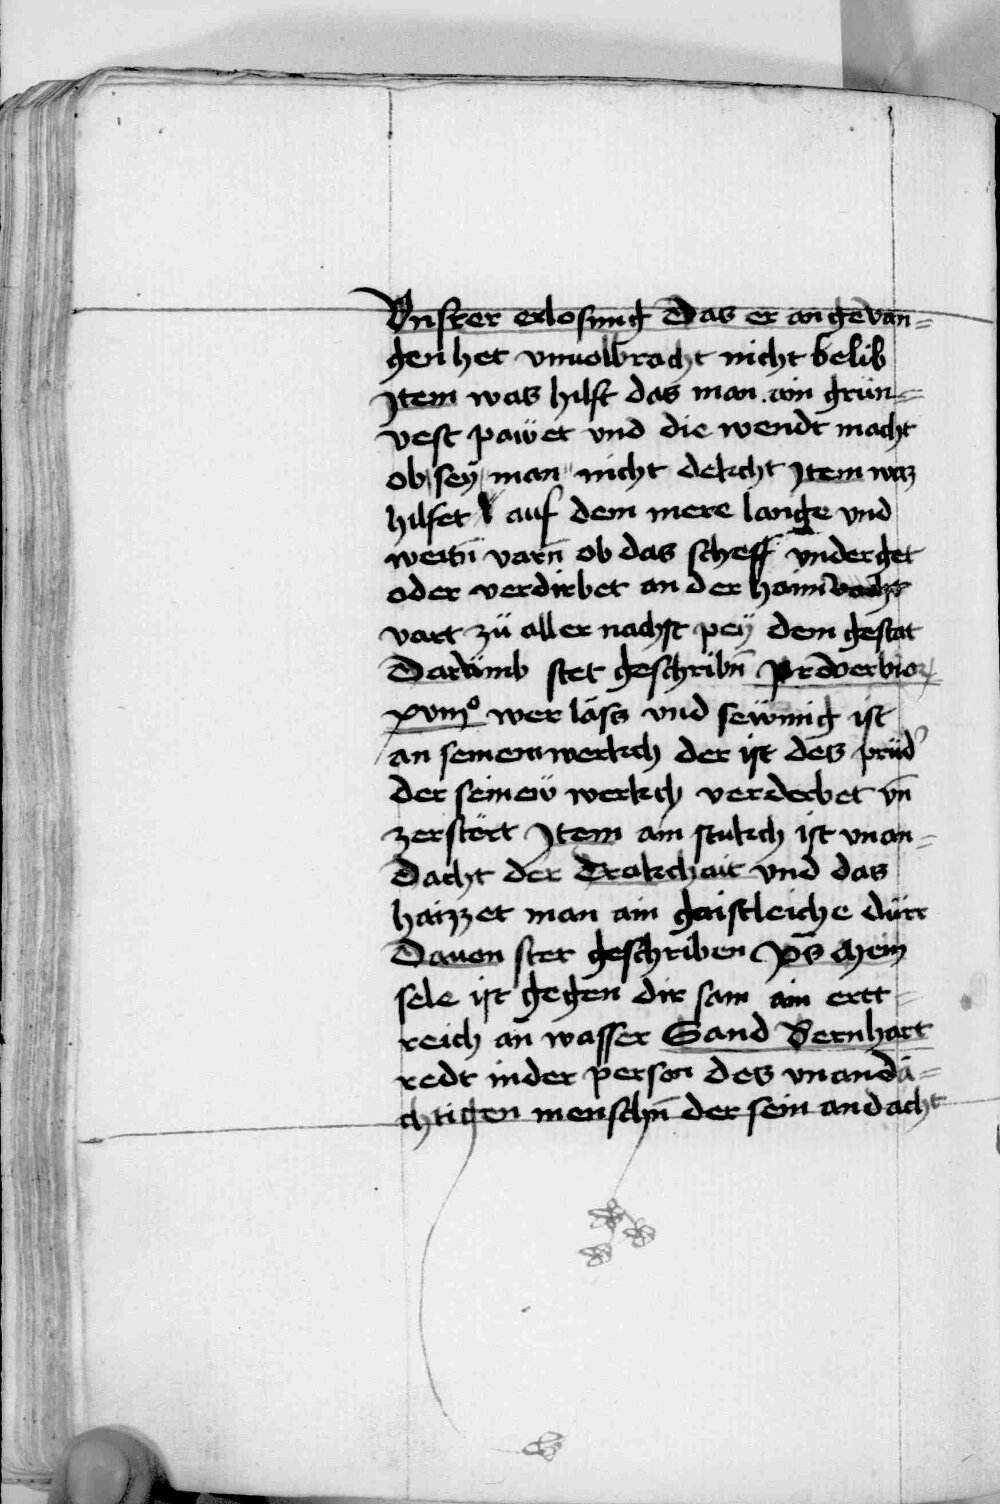 Vnsrer erlosung Das er an gevan-
gen het vnuolbracht nicht belib
Item was hilft das man ain grün-
vest pawet vnd die wendt macht
ob sey man nicht dekcht Item waz
hilfet auf dem mere lange vnd
weitn̄ varn̄ ob das scheff vnderget
oder verdirbet an der haim
vart zü aller nachst pey dem gestat
Darümb stet geschribn̄ Prouerbior
xviij⁰ wer läss vnd sewmig ist
an seinem werkch der ist des prüd
der seinew werkch verderbet vn̄
zerstört Item ain stukch ist vnan-
dacht der Trakchait vnd das
haizzet man ain gaistleiche dürr
Dauon stet geschriben ps̄ Mein
sele ist gegen dir sam ain ertt-
reich an wasser Sand Bernhart
redt in der person des vnandä-
chtigen menschn̄ der sein andacht